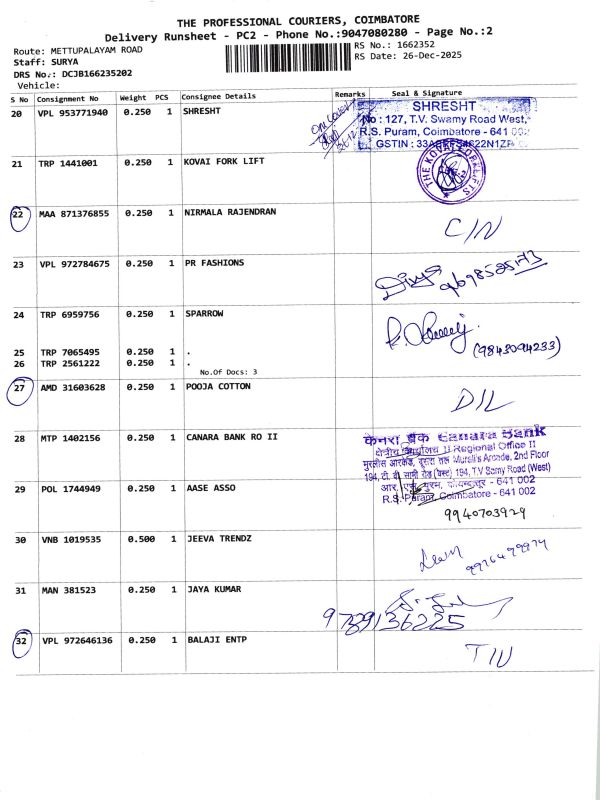 THE PROFESSIONAL COURIERS, COIMBATORE
Delivery Runsheet - PC2 - Phone No.:9047080280 - Page No.:2
Route: METTUPALAYAM ROAD
RS No.: 1662352
Staff: SURYA
RS Date: 26-Dec-2025
DRS No.: DCJB166235202
Vehicle:
S No Consignment No Weight PCS Consignee Details Remarks Seal & Signature
20 VPL 953771940 0.250 1 SHRESHT
SHRESHT
No : 127, T.V. Swamy Road West,
R.S. Puram, Coimbatore - 641 002
GSTIN :
21 TRP 1441001 0.250 1 KOVAI FORK LIFT
THE KOVAI FORKLIFTS
22 MAA 871376855 0.250 1 NIRMALA RAJENDRAN
C/N
23 VPL 972784675 0.250 1 PR FASHIONS
Divya
9698525173
24 TRP 6959756 0.250 1 SPARROW
(9843094233)
25 TRP 7065495 0.250 1 .
26 TRP 2561222 0.250 1 .
No.Of Docs: 3
27 AMD 31603628 0.250 1 POOJA COTTON
D/L
28 MTP 1402156 0.250 1 CANARA BANK RO II
केनरा बैंक Canara Bank
क्षेत्रीय कार्यालय II Regional Office II
मुरलीस आरकेड, दूसरा तल Murali's Arcade, 2nd Floor
194, टी. वी. सामी रोड (वेस्ट) 194, T.V Samy Road (West)
आर. एस. पुरम, कोयम्बत्तूर - 641 002
R.S. Puram, Coimbatore - 641 002
29 POL 1744949 0.250 1 AASE ASSO
9940703929
30 VNB 1019535 0.500 1 JEEVA TRENDZ
31 MAN 381523 0.250 1 JAYA KUMAR
9789136225
32 VPL 972646136 0.250 1 BALAJI ENTP
T/N